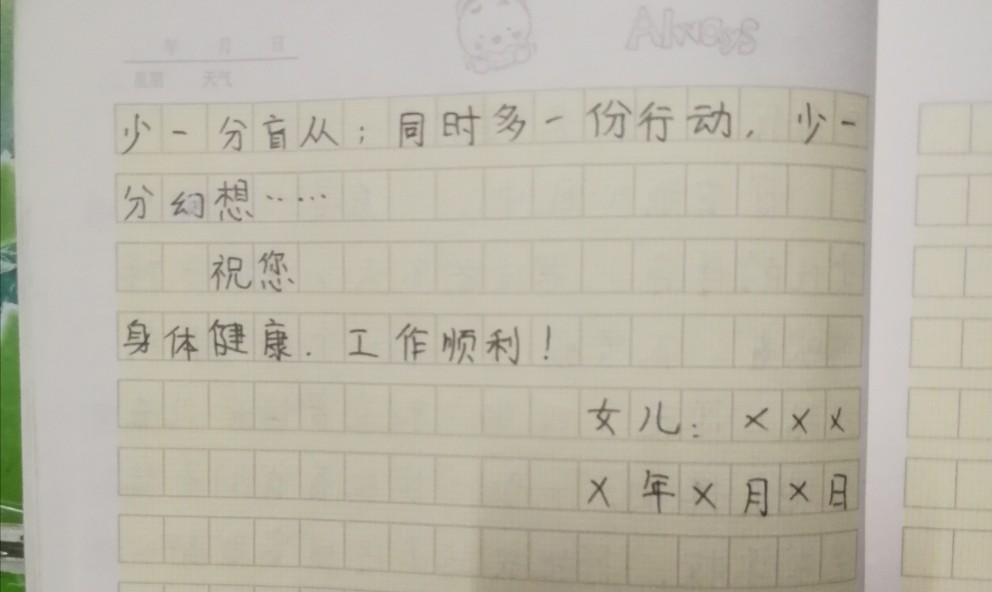 Always
年 月 日
星期 天气
少一分盲从；同时多一份行动，少一
分幻想……
祝您
身体健康．工作顺利！
女儿：×××
×年×月×日